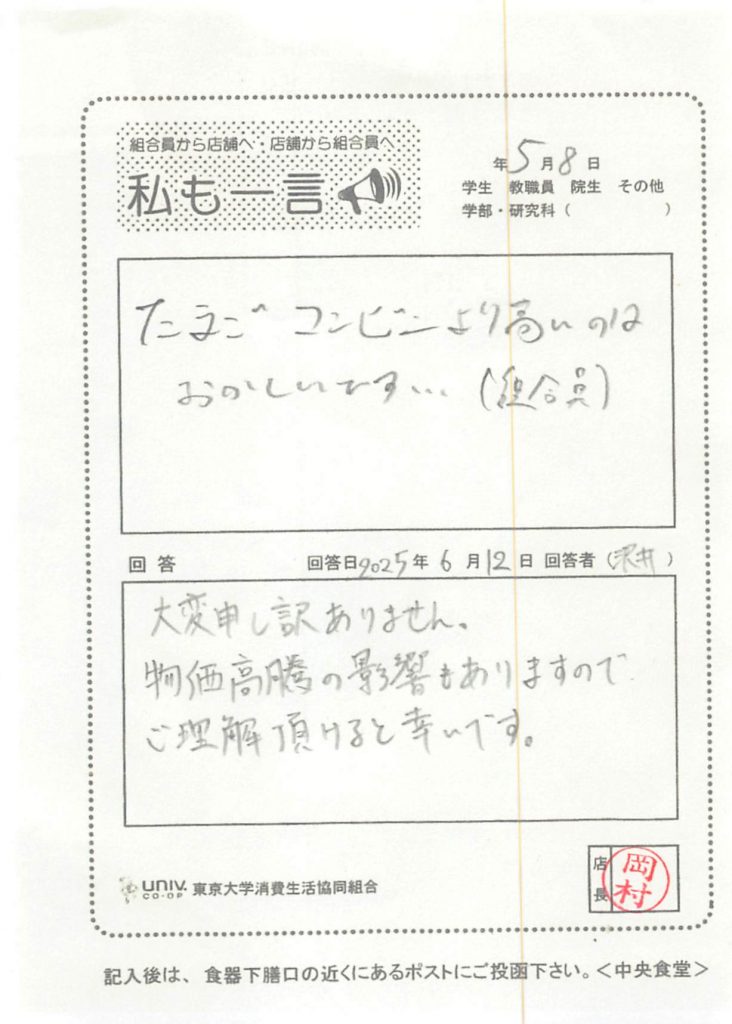 組合員から店舗へ・店舗から組合員へ
私も一言
年5月8日
学生 教職員 院生 その他
学部・研究科( )
たまご コンビニより高いのは
おかしいです… (組合員)
回答 回答日2025年6月12日 回答者(沢井)
大変申し訳ありません。
物価高騰の影響もありますので
ご理解頂けると幸いです。
UNIV. CO-OP 東京大学消費生活協同組合
店長 岡村
記入後は、食器下膳口の近くにあるポストにご投函下さい。<中央食堂>